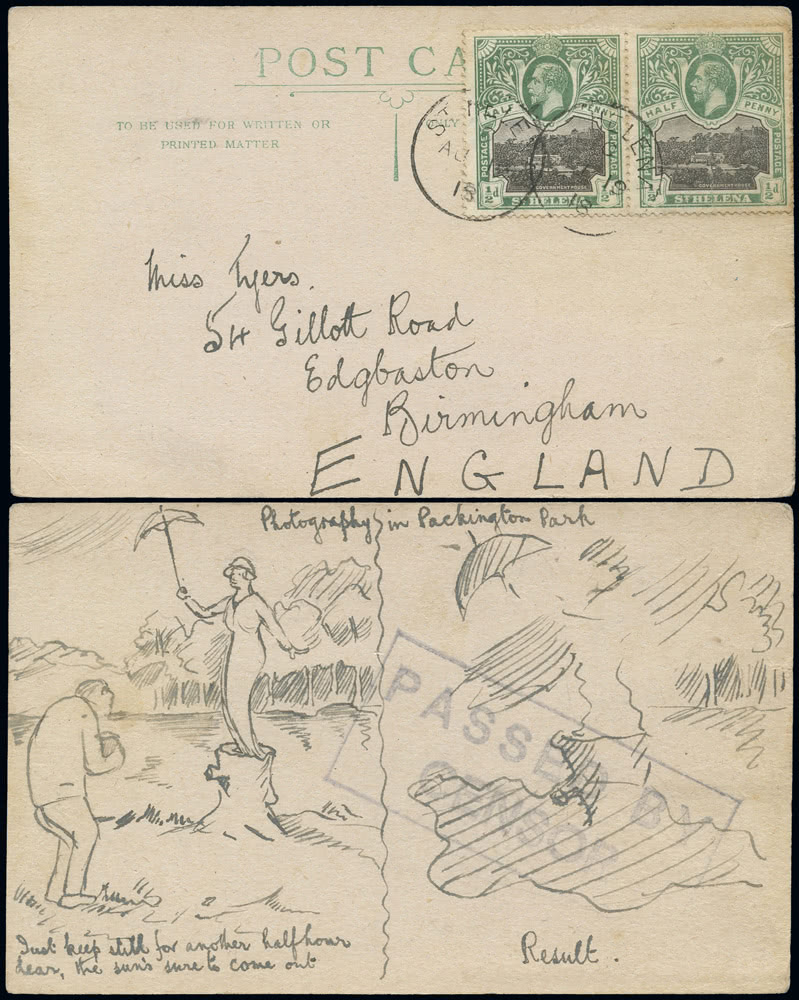 POST CA
TO BE USED FOR WRITTEN OR
PRINTED MATTER
HALF PENNY
POSTAGE
GOVERNMENT HOUSE
½d ½d
ST HELENA
HALF PENNY
POSTAGE POSTAGE
GOVERNMENT HOUSE
½d ½d
ST HELENA
ST HELENA
AU
18
HELENA
18
Miss Tyers.
54 Gillott Road
Edgbaston
Birmingham
ENGLAND
Photography in Packington Park
PASSED BY
CENSOR
Just keep still for another half hour
dear, the sun's sure to come out
Result.